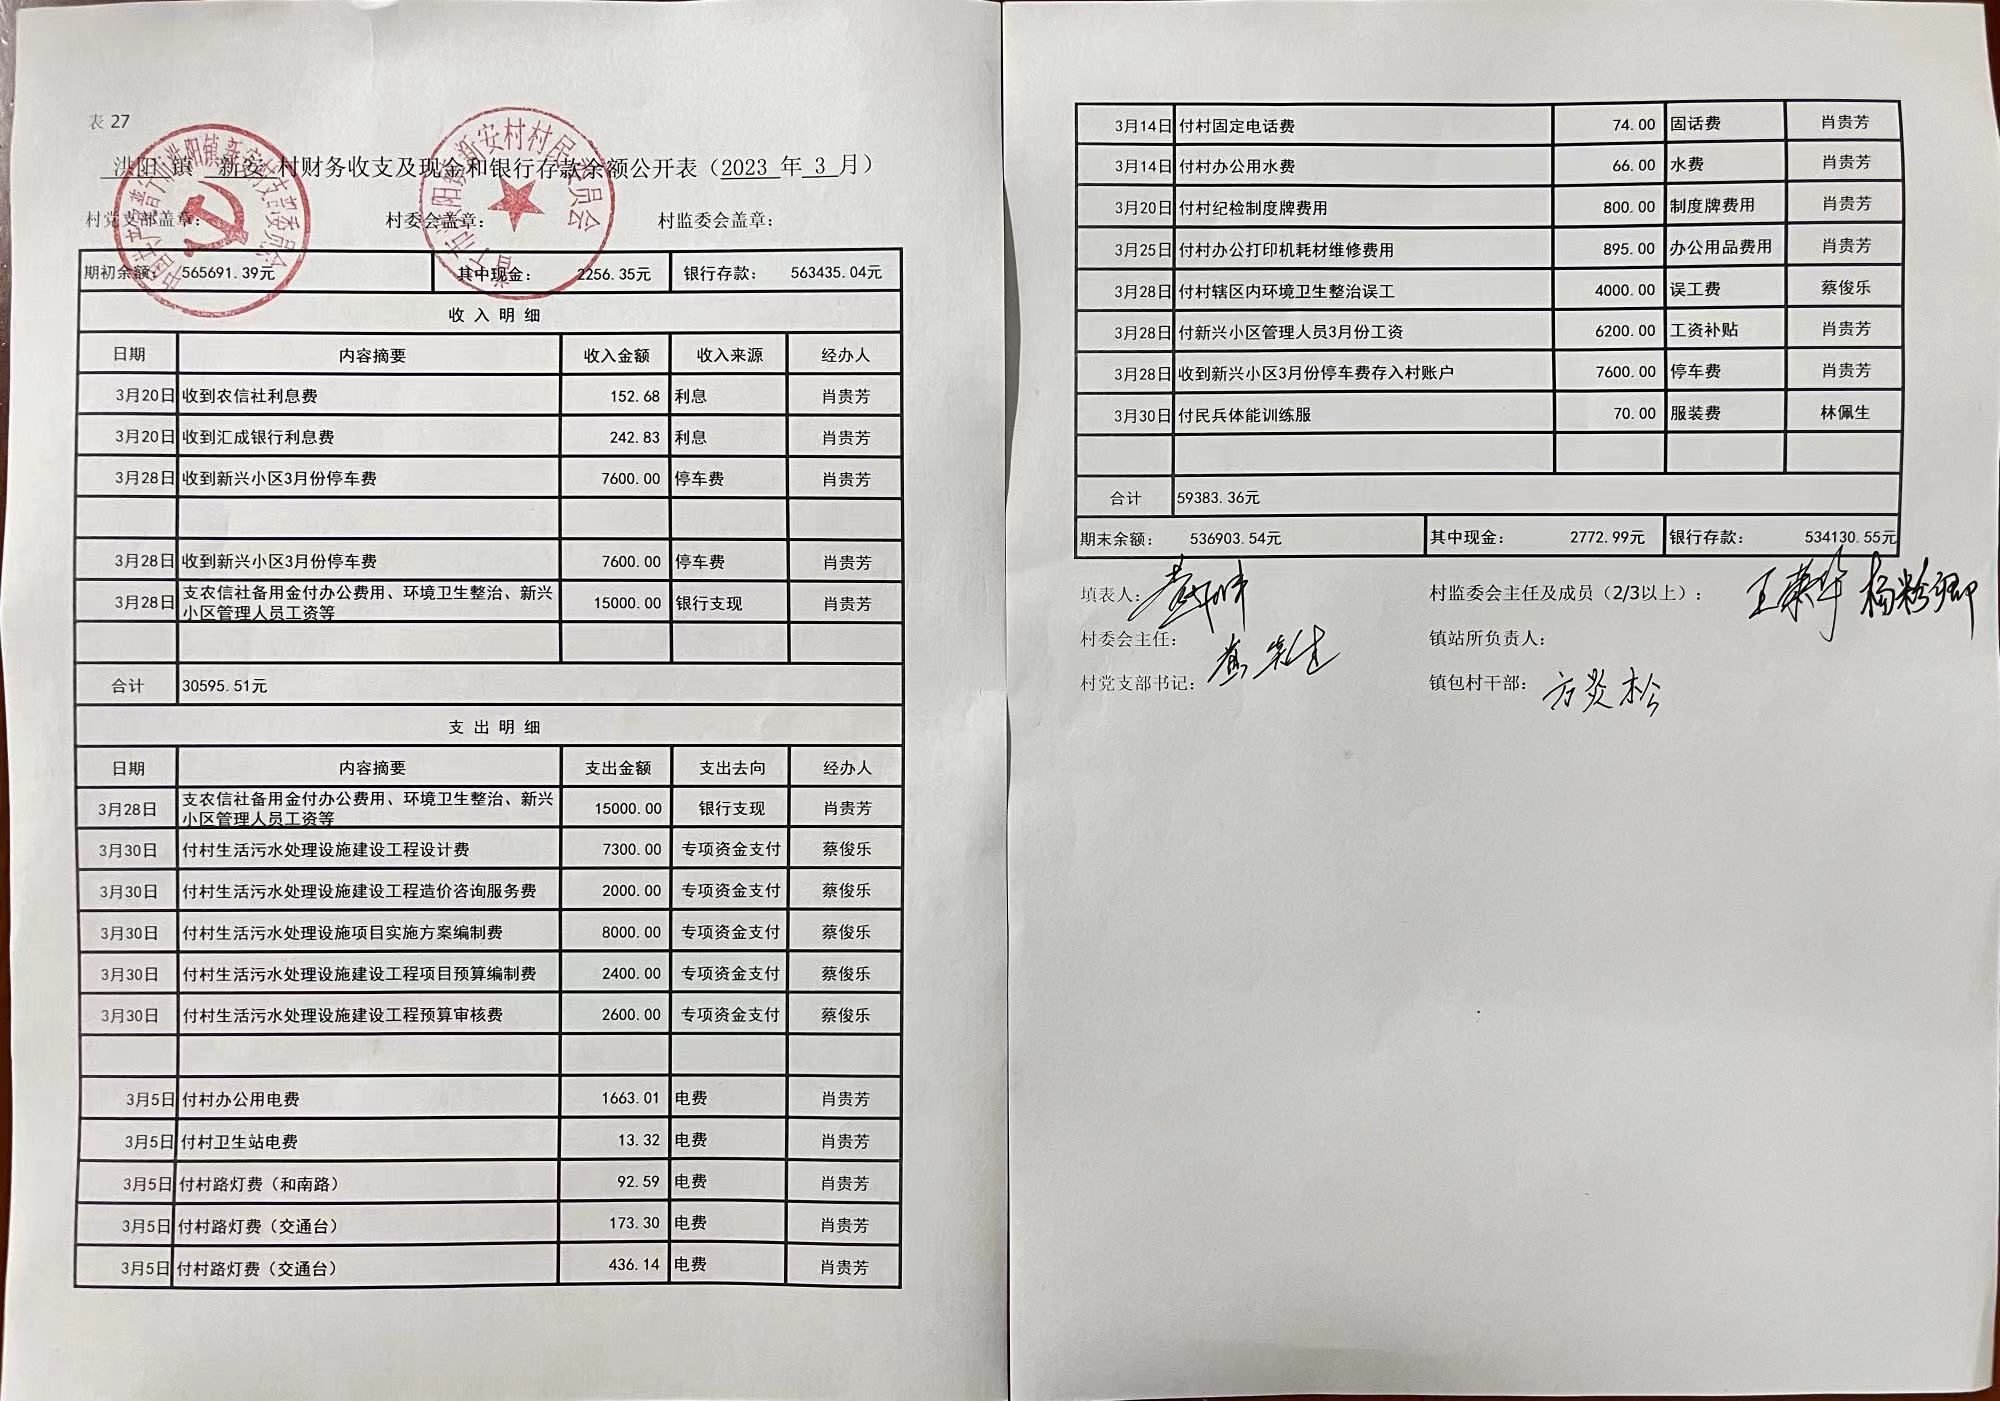 表 27
洪阳 镇 新安 村财务收支及现金和银行存款余额公开表（2023 年 3 月）
村党支部盖章： 村委会盖章： 村监委会盖章：
期初余额： 565691.39元 其中现金： 2256.35元 银行存款： 563435.04元
收 入 明 细
日期 内容摘要 收入金额 收入来源 经办人
3月20日 收到农信社利息费 152.68 利息 肖贵芳
3月20日 收到汇成银行利息费 242.83 利息 肖贵芳
3月28日 收到新兴小区3月份停车费 7600.00 停车费 肖贵芳
3月28日 收到新兴小区3月份停车费 7600.00 停车费 肖贵芳
3月28日 支农信社备用金付办公费用、环境卫生整治、新兴 15000.00 银行支现 肖贵芳
小区管理人员工资等
合计 30595.51元
支 出 明 细
日期 内容摘要 支出金额 支出去向 经办人
3月28日 支农信社备用金付办公费用、环境卫生整治、新兴 15000.00 银行支现 肖贵芳
小区管理人员工资等
3月30日 付村生活污水处理设施建设工程设计费 7300.00 专项资金支付 蔡俊乐
3月30日 付村生活污水处理设施建设工程造价咨询服务费 2000.00 专项资金支付 蔡俊乐
3月30日 付村生活污水处理设施项目实施方案编制费 8000.00 专项资金支付 蔡俊乐
3月30日 付村生活污水处理设施建设工程项目预算编制费 2400.00 专项资金支付 蔡俊乐
3月30日 付村生活污水处理设施建设工程预算审核费 2600.00 专项资金支付 蔡俊乐
3月5日 付村办公用电费 1663.01 电费 肖贵芳
3月5日 付村卫生站电费 13.32 电费 肖贵芳
3月5日 付村路灯费（和南路） 92.59 电费 肖贵芳
3月5日 付村路灯费（交通台） 173.30 电费 肖贵芳
3月5日 付村路灯费（交通台） 436.14 电费 肖贵芳
3月14日 付村固定电话费 74.00 固话费 肖贵芳
3月14日 付村办公用水费 66.00 水费 肖贵芳
3月20日 付村纪检制度牌费用 800.00 制度牌费用 肖贵芳
3月25日 付村办公打印机耗材维修费用 895.00 办公用品费用 肖贵芳
3月28日 付村辖区内环境卫生整治误工 4000.00 误工费 蔡俊乐
3月28日 付新兴小区管理人员3月份工资 6200.00 工资补贴 肖贵芳
3月28日 收到新兴小区3月份停车费存入村账户 7600.00 停车费 肖贵芳
3月30日 付民兵体能训练服 70.00 服装费 林佩生
合计 59383.36元
期末余额： 536903.54元 其中现金： 2772.99元 银行存款： 534130.55元
填表人： 村监委会主任及成员（2/3以上）：
村委会主任： 镇站所负责人：
村党支部书记： 镇包村干部： 方炎松